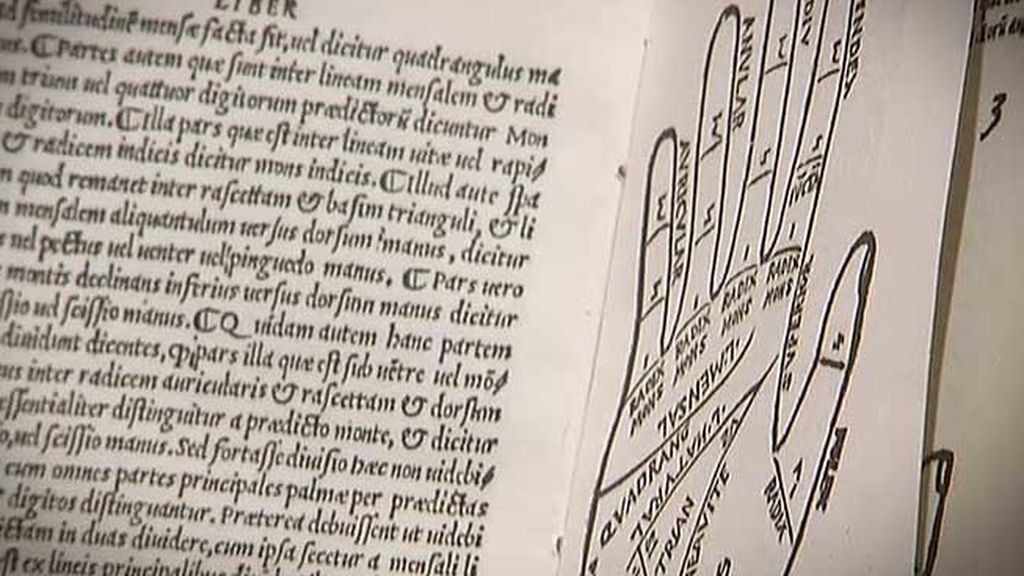 LIBER
similitudinē mensæ facta sit, uel dicitur quadrangulus ma
ᑕPartes autem quæ sunt inter lineam mensalem & radi
trium uel quattuor digitorum prædictorū dicuntur Mon
digitorum. ᑕIlla pars quæ est inter lineam uitæ uel rapi
& radicem indicis dicitur mons indicis. ᑕIllud aute spa
quod remanet inter rascettam & basim trianguli, & li
mensalem aliquantulum uersus dorsum manus, dicitur
uel pectus uel uenter uel pinguedo manus. ᑕPars uero
montis declinans inferius uersus dorsum manus dicitur
uel scissio manus. ᑕQuidam autem hanc partem
diuidunt dicentes, pars illa quæ est sub uētre uel mō
inter radicem auricularis & rascettam & dorsum
essentialiter distinguitur a prædicto monte, & dicitur
uel scissio manus. Sed fortasse diuisio hæc non uidebi
cum omnes partes principales palmæ per prædictas
digitos distinguantur. Præterea debuissent ut uidebi
in duas diuidere, cum ipsa secetur a mensali li
ex lineis principalibus
ANVLAR
AVRICVLAR
RADIX MONS
RADIX MONS
RADIX MONS
RADIX MONS
L. MENSAL
QVADRANG
TRIAN
POLLEX
RADIX
3